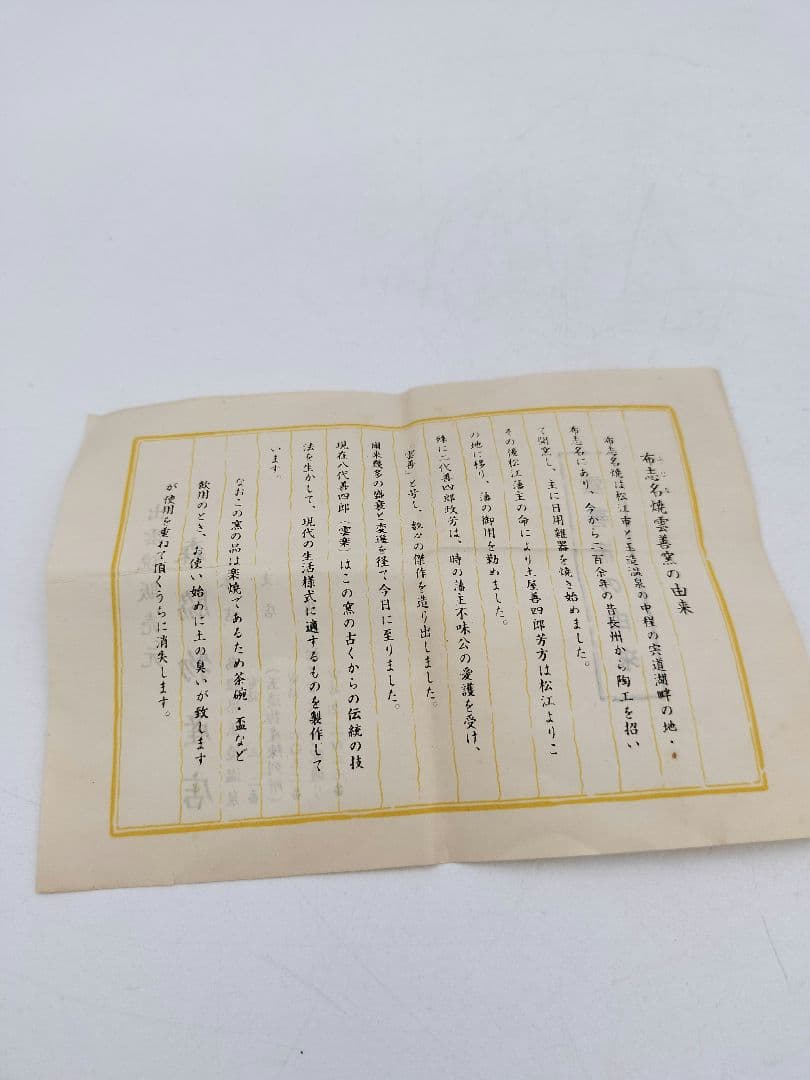 布志名焼雲善窯の由来
布志名焼は松江市と玉造温泉の中程の宍道湖畔の地・
布志名にあり、今から二百余年の昔長州から陶工を招い
て開窯し、主に日用雑器を焼き始めました。
その後松江藩主の命により土屋善四郎芳方は松江よりこ
の地に移り、藩の御用を勤めました。
殊に二代善四郎政芳は、時の藩主不味公の愛護を受け、
「雲善」と号し、数々の傑作を造り出しました。
由来幾多の盛衰と変遷を径て今日に至りました。
現在八代善四郎（雲楽）はこの窯の古くからの伝統の技
法を生かして、現代の生活様式に適するものを製作して
います。
なおこの窯の品は楽焼であるため茶碗・盃など
飲用のとき、お使い始めに土の臭いが致します
が使用を重ねて頂くうちに消失します。